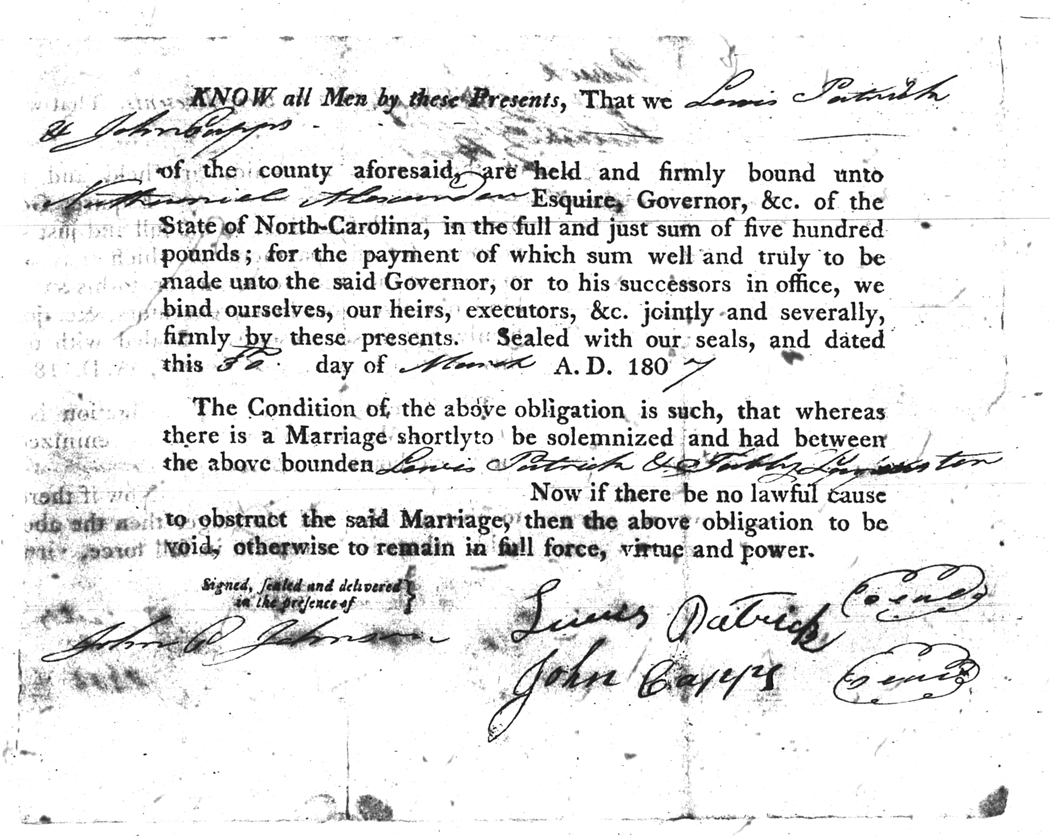 KNOW all Men by these Presents, That we Lewis Patrick
& John Capps
of the county aforesaid, are held and firmly bound unto
Nathaniel Alexander Esquire, Governor, &c. of the
State of North-Carolina, in the full and just sum of five hundred
pounds; for the payment of which sum well and truly to be
made unto the said Governor, or to his successors in office, we
bind ourselves, our heirs, executors, &c. jointly and severally,
firmly by these presents. Sealed with our seals, and dated
this day of March A. D. 1807
The Condition of the above obligation is such, that whereas
there is a Marriage shortly to be solemnized and had between
the above bounden Lewis Patrick & Tabby
Now if there be no lawful cause
to obstruct the said Marriage, then the above obligation to be
void, otherwise to remain in full force, virtue and power.
Signed, sealed and delivered }
in the presence of
John Johnson
Lewis Patrick
John Capps